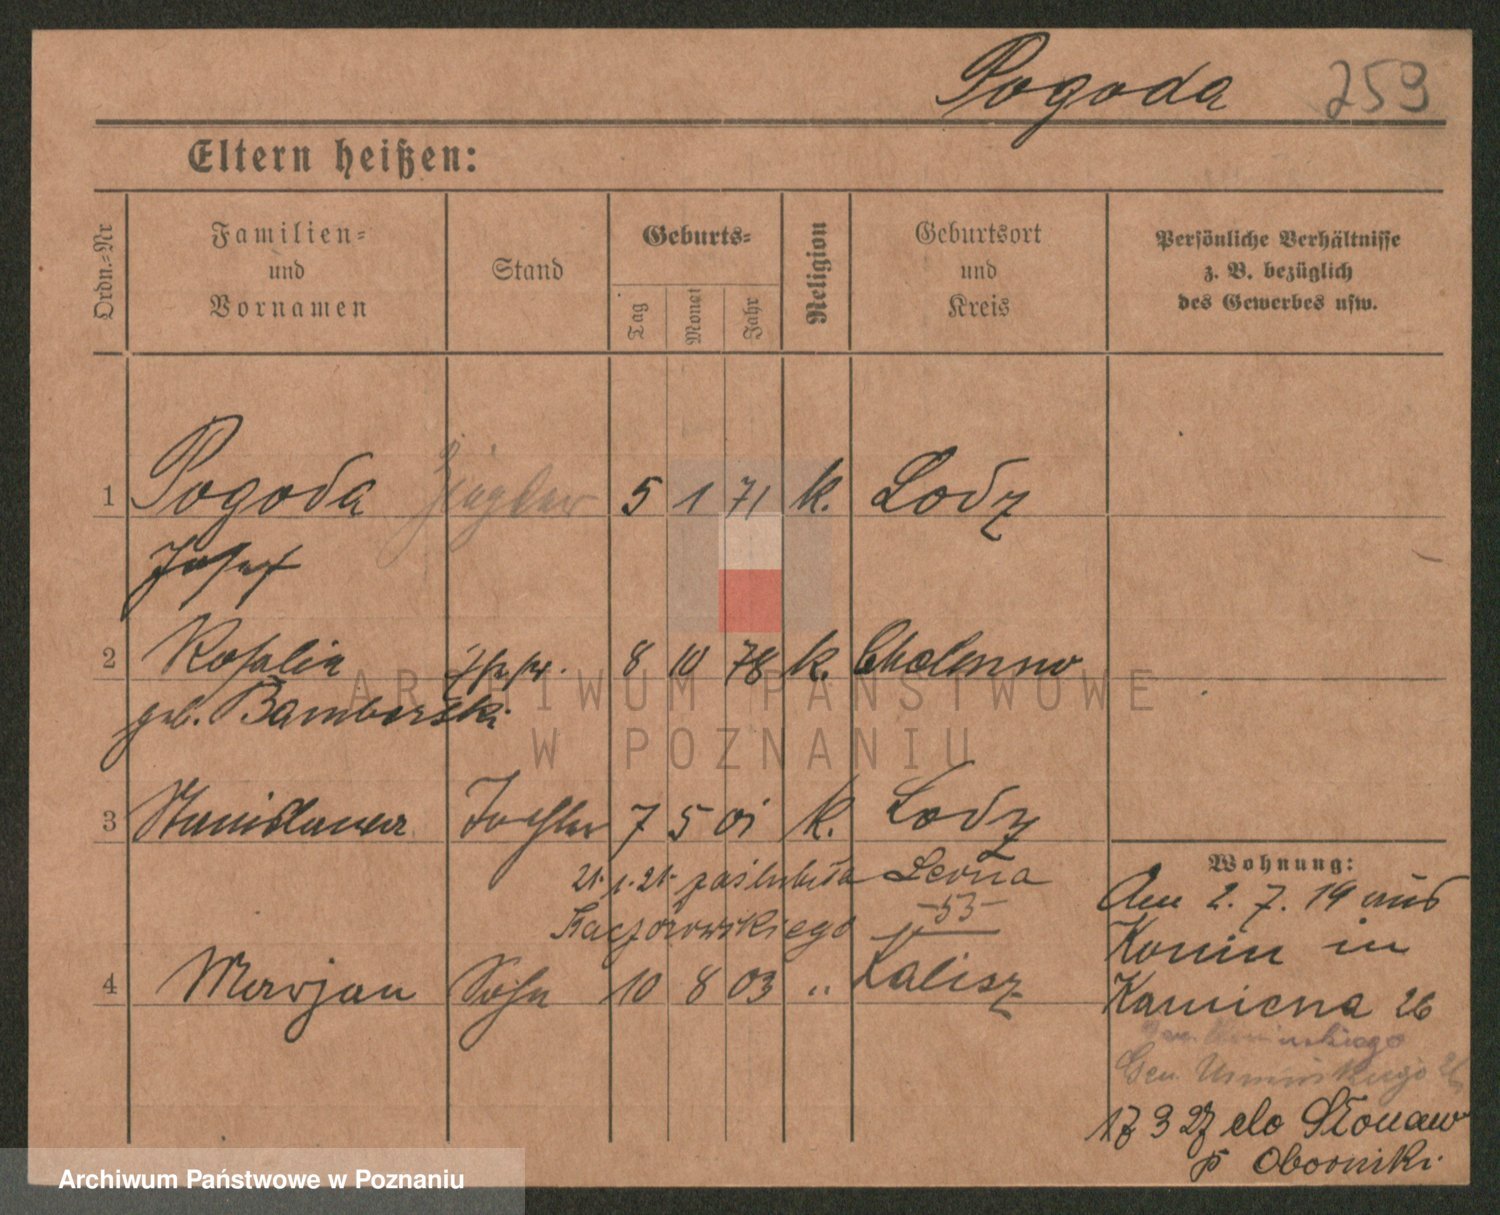 Pogoda 253
Eltern heißen:
Ordn.-Nr
Familien-
und
Vornamen
Stand
Geburts-
Tag
Monat
Jahr
Religion
Geburtsort
und
Kreis
Persönliche Verhältnisse
z. B. bezüglich
des Gewerbes usw.
1 Pogoda 5 1 71 k. Lodz
Josef
2 Rosalia 8 10 78 k. Cholmno
geb. Bamberski
3 Stanislawa Tochter 7 5 01 k. Lodz
21. 1. 21. poślubiła Leona
Kaczorowskiego 53
4 Maryan Sohn 10 8 03 " Kalisz
Wohnung:
Am 2. 7. 19 aus
Konin in
Kamiena 26
Gen. Umińskiego 26
17 3 27 do Słonaw
p Oborniki.
ARCHIWUM PAŃSTWOWE
W POZNANIU
Archiwum Państwowe w Poznaniu